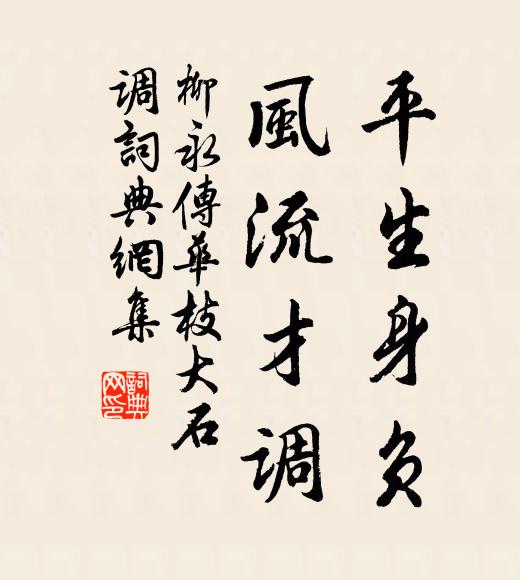 平生身负
風流才调
柳永傳華枝大石
调詞典網集
詞典網印